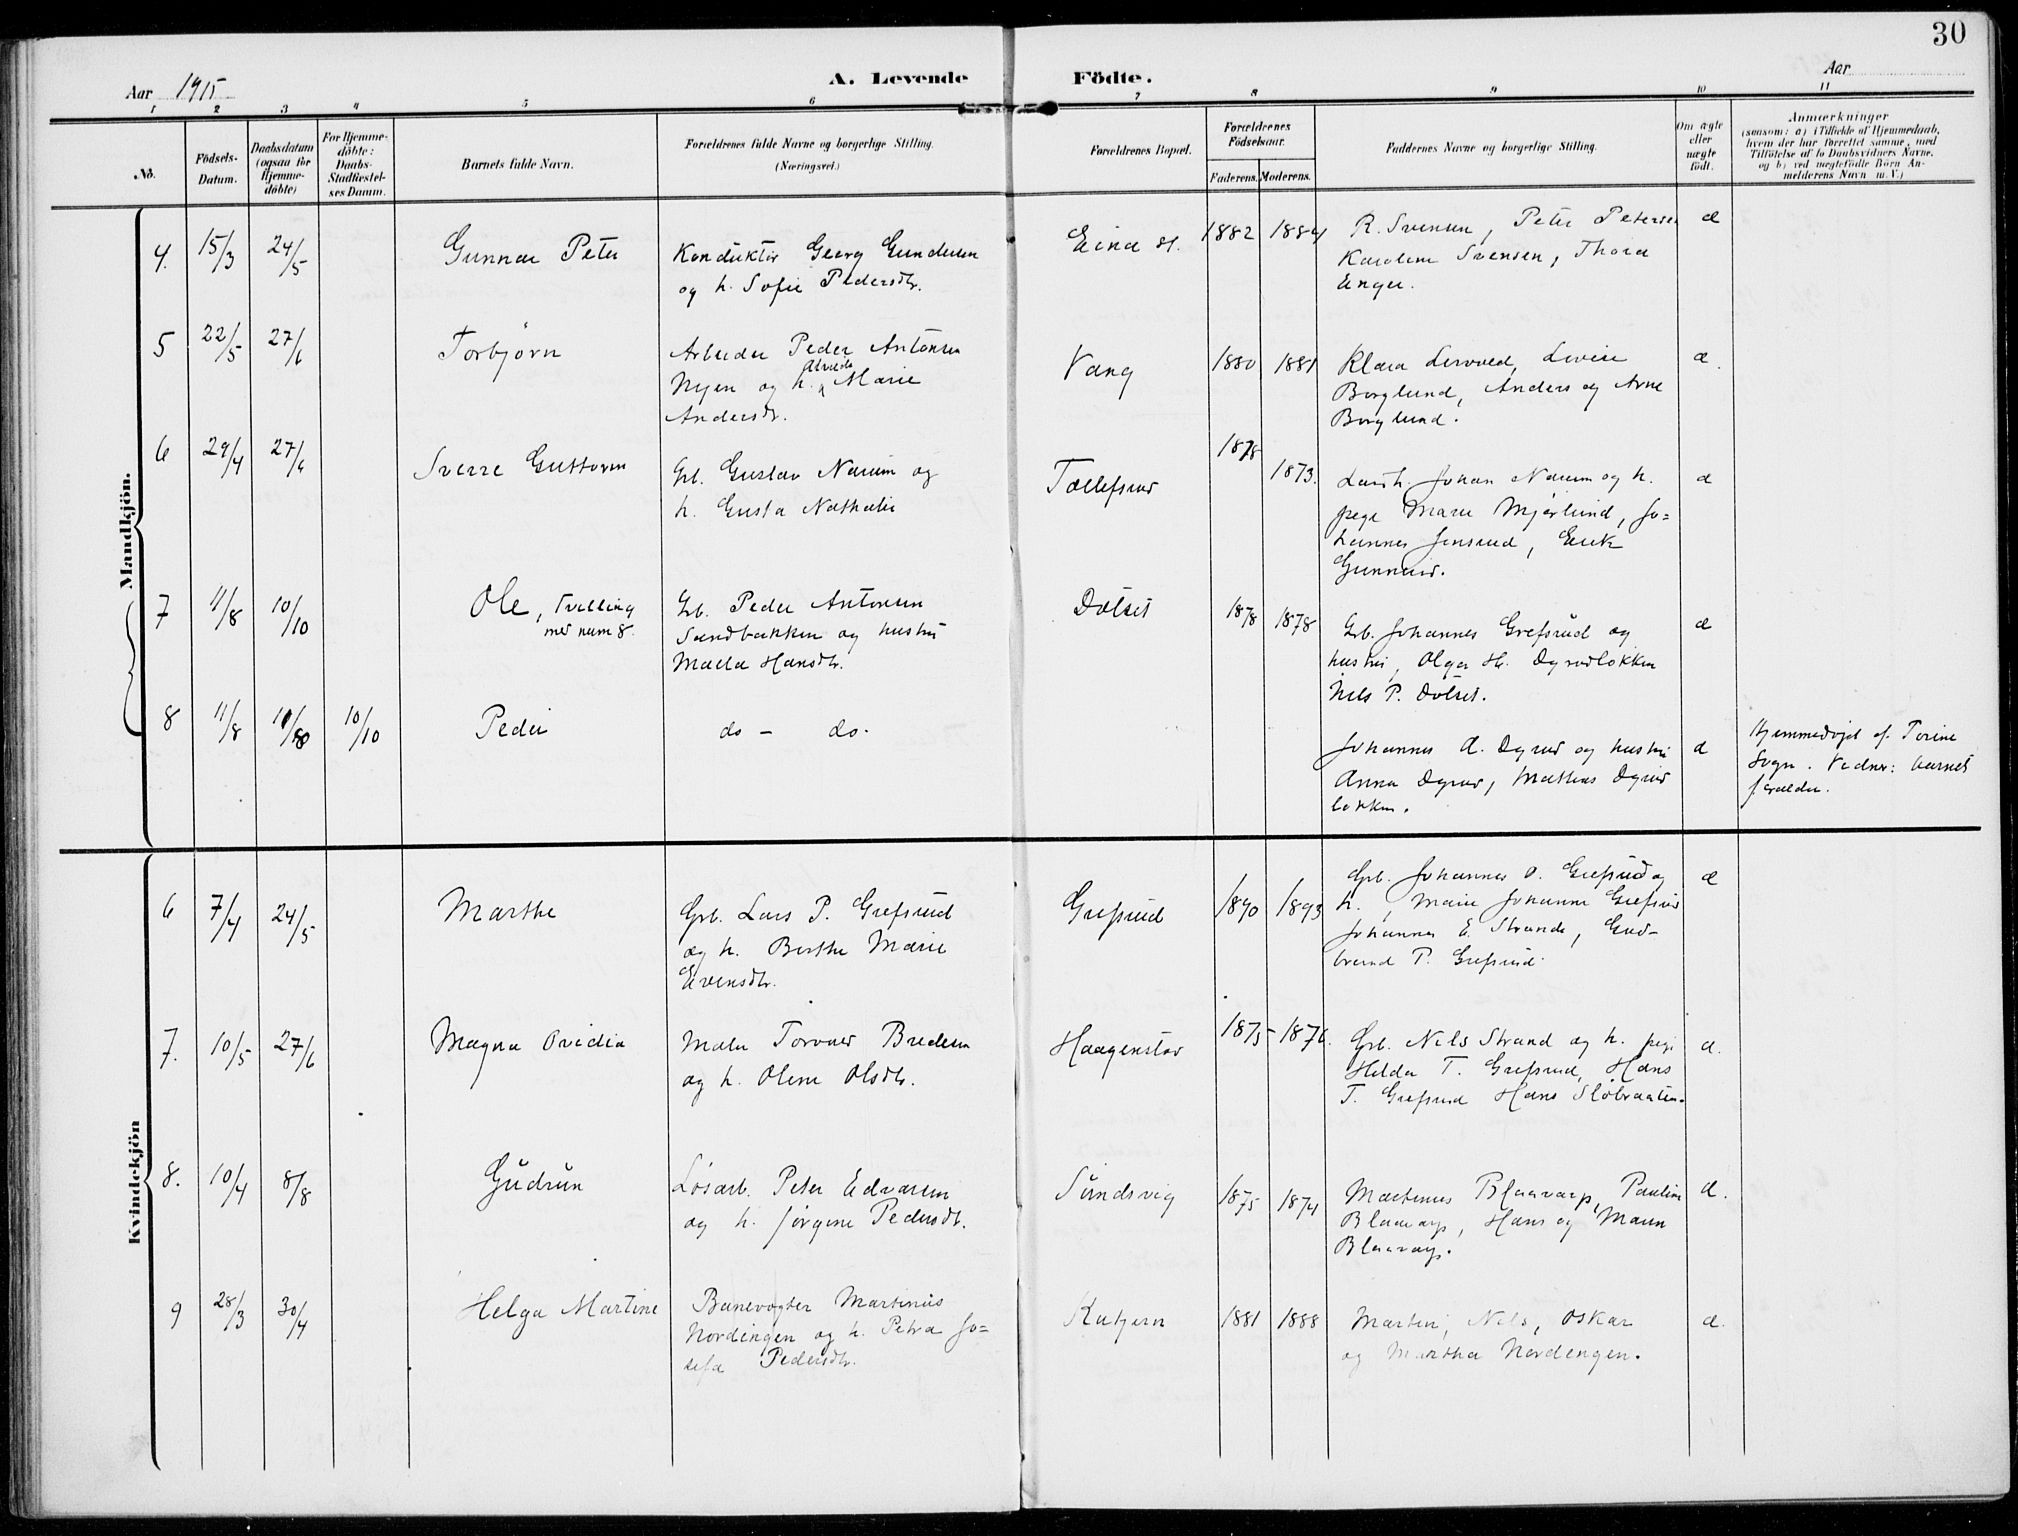 30
Aar 1915
A. Levende Födte.
Aar
1 2 3 4 5 6 7 8 9 10 11
No.
Födsels-
Datum.
Daabsdatum
(ogsaa for
Hjemme-
döbte)
For Hjemme-
döbte:
Daabs-
Stadfæstel-
ses Datum.
Barnets fulde Navn.
Forældrenes fulde Navne og borgerlige Stilling.
(Næringsvei.)
Forældrenes Bopæl.
Forældrenes
Födselsaar.
Faderens. Moderens.
Faddernes Navne og borgerlige Stilling.
Om ægte
eller
uægte
födt.
Anmærkninger
(saasom: a) i Tilfælde af Hjemmedaab,
hvem der har forrettet samme, med
Tilföielse af to Daabsvidners Navne,
og b) ved uægtefödte Börn An-
melderens Navn m.V.)
Mandkjön.
4. 15/3 24/5 Gunnar Peter
Konduktør Georg Gundersen
og h. Sofie Pedersdtr.
Eina st. 1882 1884
R. Svensen, Peter Petersen
Karoline Svensen, Thora
Enger.
æ
5 22/5 27/6 Torbjørn
Arbeider Peder Antonsen
Nyen og h. Marie
Andersdtr.
Vang 1880 1881
Klara Lervold, Lovise
Borglund, Anders og Arne
Borglund.
æ.
6 29/4 27/6 Sverre Guttorm
Grb. Gustav Narum og
h. Gusta Nathalie
Tollefsrud 1878 1873.
Landh. Johan Narum og h.
pege Marie Mjørlund, Jo=
hannes Jensrud, Erik
Gunnerud.
æ
7 11/8 10/10 Ole, Tvilling
med num 8.
Grb. Peder Antonsen
Sandbakken og hustru
Maela Hansdtr.
Dølset 1878 1878
Grb. Johannes Grefsrud og
hustru, Olga H. Dyrudløkken
Nils P. Dølset.
æ
8 11/8 11/8 10/10 Peder
do - do.
Johannes A. Dyrud og hustru
Anna Dyrud, Mathias Dyrud
løkken.
æ
Hjemmedøpt af Torine
Sogn. Vidner: barnets
forældre.
Kvindekjön
6 7/4 24/5 Marthe
Grb. Lars P. Grefsrud
og h. Berthe Marie
Evensdtr.
Grefsrud 1890 1893
Grb. Johannes O. Grefsrud og
h., Marie Johanne Grefsrud
Johannes E. Strande, Gud-
brand P. Grefsrud.
æ
7. 10/5 27/6 Magna Ovidia
Maler Torvald Bredesen
og h. Oline Olsdtr.
Haagenstad 1875 - 1876.
Grb. Nils Strand og h. pige
Helda T. Grefsrud, Hans
T. Grefsrud Hans Slobraaten.
æ.
8. 10/4 8/8 Gudrun
Løsarb. Peter Edvarsen
og h. Jørgine Pedersdt.
Sundsvig 1875 1874
Martinus Blaavarp, Pauline
Blaavarp, Hans og Maren
Blaavarp.
æ.
9 28/3 30/4 Helga Martine
Banevogter Martinus
Nordengen og h. Petra Jo=
sefa Pedersdtr.
Kutjern 1881 1888
Martin, Nils, Oskar
og Martha Nordengen.
æ.